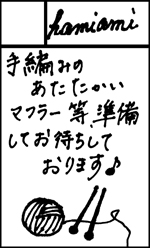 hamiami
手編みの
あたたかい
マフラー等、準備
してお待ちして
おります♪